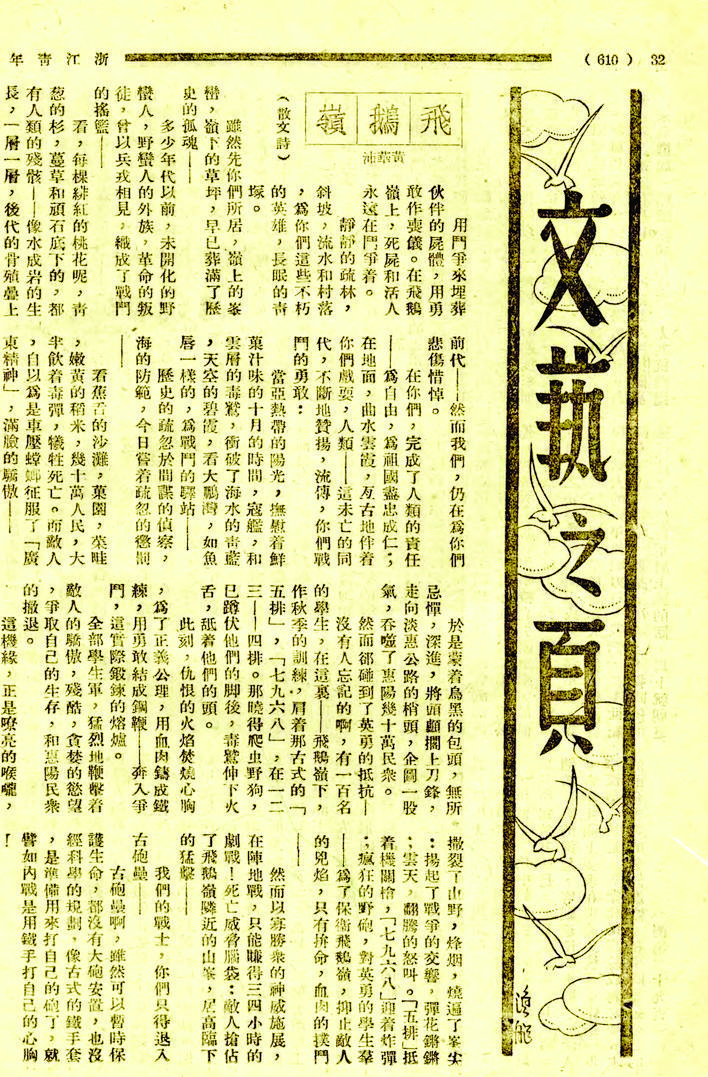 32 （610）
浙江青年
文藝之頁
飛鵝嶺
黃華沛
（散文詩）
用鬥爭來埋葬
伙伴的屍體，用勇
敢作喪儀。在飛鵝
嶺上，死屍和活人
永遠在鬥爭着。
靜靜的疏林，
斜坡，流水和村落
，爲你們這些不朽
的英雄，長眠的青
塚。
雖然先你們所居，嶺上的峯
巒，嶺下的草坪，早已葬滿了歷
史的孤魂——
多少年代以前，未開化的野
蠻人，野蠻人的外族，革命的叛
徒，曾以兵戎相見，織成了戰鬥
的搖籃——
看，每棵緋紅的桃花呢，青
葱的杉，蔓草和頑石底下的，都
有人類的殘骸——像水成岩的生
長，一層一層，後代的骨殖疊上
前代——然而我們，仍在爲你們
悲傷惜悼。
在你們，完成了人類的責任
——爲自由，爲祖國盡忠成仁；
在地面，曲水雲霞，亙古地伴着
你們戲耍，人類——這未亡的同
代，不斷地贊揚，流傳，你們戰
鬥的勇敢：
當亞熱帶的陽光，撫慰着鮮
菓汁味的十月的時間，寇艦，和
雲層的毒鷲，衝破了海水的青藍
，天空的碧霞，看大鵬灣，如魚
唇一樣的，爲戰鬥的驛站——
歷史的疏忽於間諜的偵察，
海的防範，今日嘗着疏忽的懲罰
——
看蕉舌的沙灘，菓園，菜畦
，嫩黃的稻米，幾十萬人民，大
半飲着毒彈，犧牲死亡。而敵人
，自以爲是車壓螳螂征服了「廣
東精神」，滿臉的驕傲——
於是蒙着烏黑的包頭，無所
忌憚，深進，將頭顱擱上刀鋒，
走向淡惠公路的梢頭，企圖一股
氣，吞噬了惠陽幾十萬民衆。
然而卻碰到了英勇的抵抗—
沒有人忘記的啊，有一百名
的學生，在這裏——飛鵝嶺下，
作秋季的訓練，肩着那古式的「
五排」，「七九六八」，在一二
三——四排。那曉得爬虫野狗，
已蹲伏他們的脚後，毒鷲伸下火
舌，舐着他們的頭。
此刻，仇恨的火焰焚燒心胸
，爲了正義公理，用血肉鑄成鐵
練，用勇敢結成鋼鞭——奔入爭
鬥，這實際鍛鍊的熔爐。
全部學生軍，猛烈地鞭擊着
敵人的驕傲，殘酷，貪婪的慾望
，爭取自己的生存，和惠陽民衆
的撤退。
這機緣，正是嘹亮的喉嚨，
撒裂了山野，烽烟，燒遍了峯尖
：揚起了戰爭的交響，彈花鏘鏘
；雲天，翻騰的怒叫。「五排」抵
着機關槍，「七九六八」迎着炸彈
；瘋狂的野砲，對英勇的學生羣
——爲了保衛飛鵝嶺，抑止敵人
的兇焰，只有拚命，血肉的撲鬥
——
然而以寡勝衆的神威施展，
在陣地戰，只能賺得三四小時的
劇戰！死亡威脅腦袋：敵人搶佔
了飛鵝嶺隣近的山峯，居高臨下
的猛擊——
我們的戰士，你們只得退入
古砲壘——
古砲壘啊，雖然可以暫時保
護生命，都沒有大砲安置，也沒
經科學的規劃，像古式的鐵手套
，是準備用來打自己的砲了，就
譬如內戰是用鐵手打自己的心胸
！